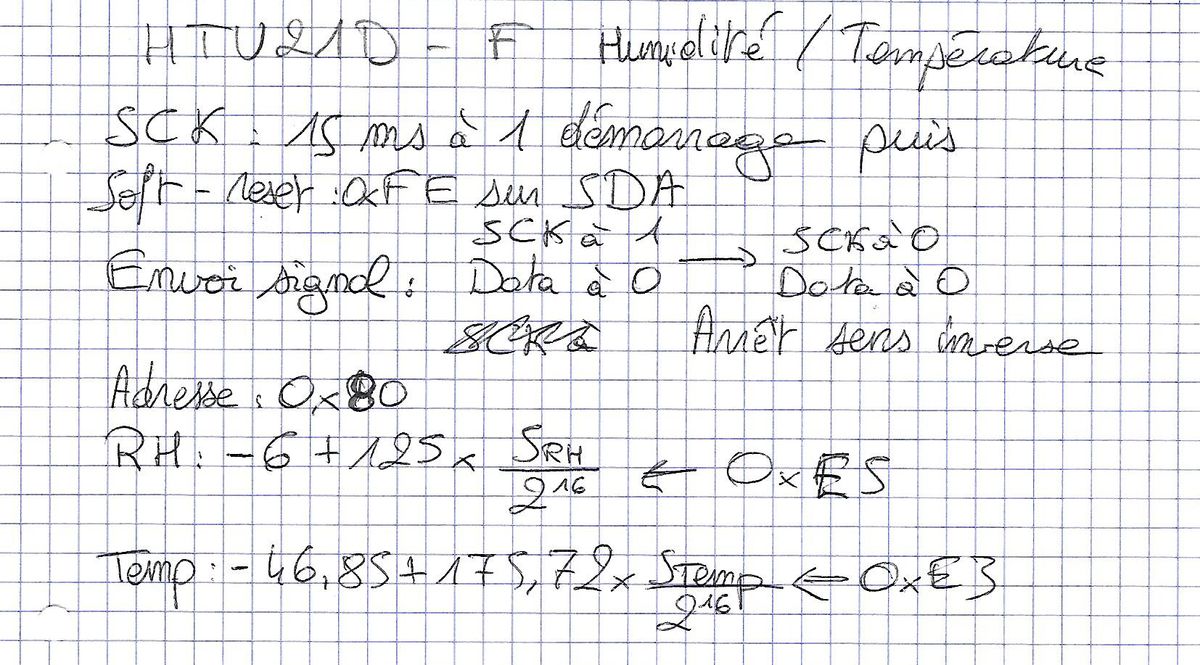 HTU21D - F Humidité / Température
SCK : 15 ms à 1 démarrage puis
Soft-reset : 0xFE sur SDA
SCK à 1 → SCK à 0
Envoi signal : Data à 0 Data à 0
SCK à Arrêt sens inverse
Adresse : 0x80
RH : -6 + 125 x SRH / 2^16 ← 0xE5
Temp : -46,85 + 175,72 x STemp / 2^16 ⇐ 0xE3